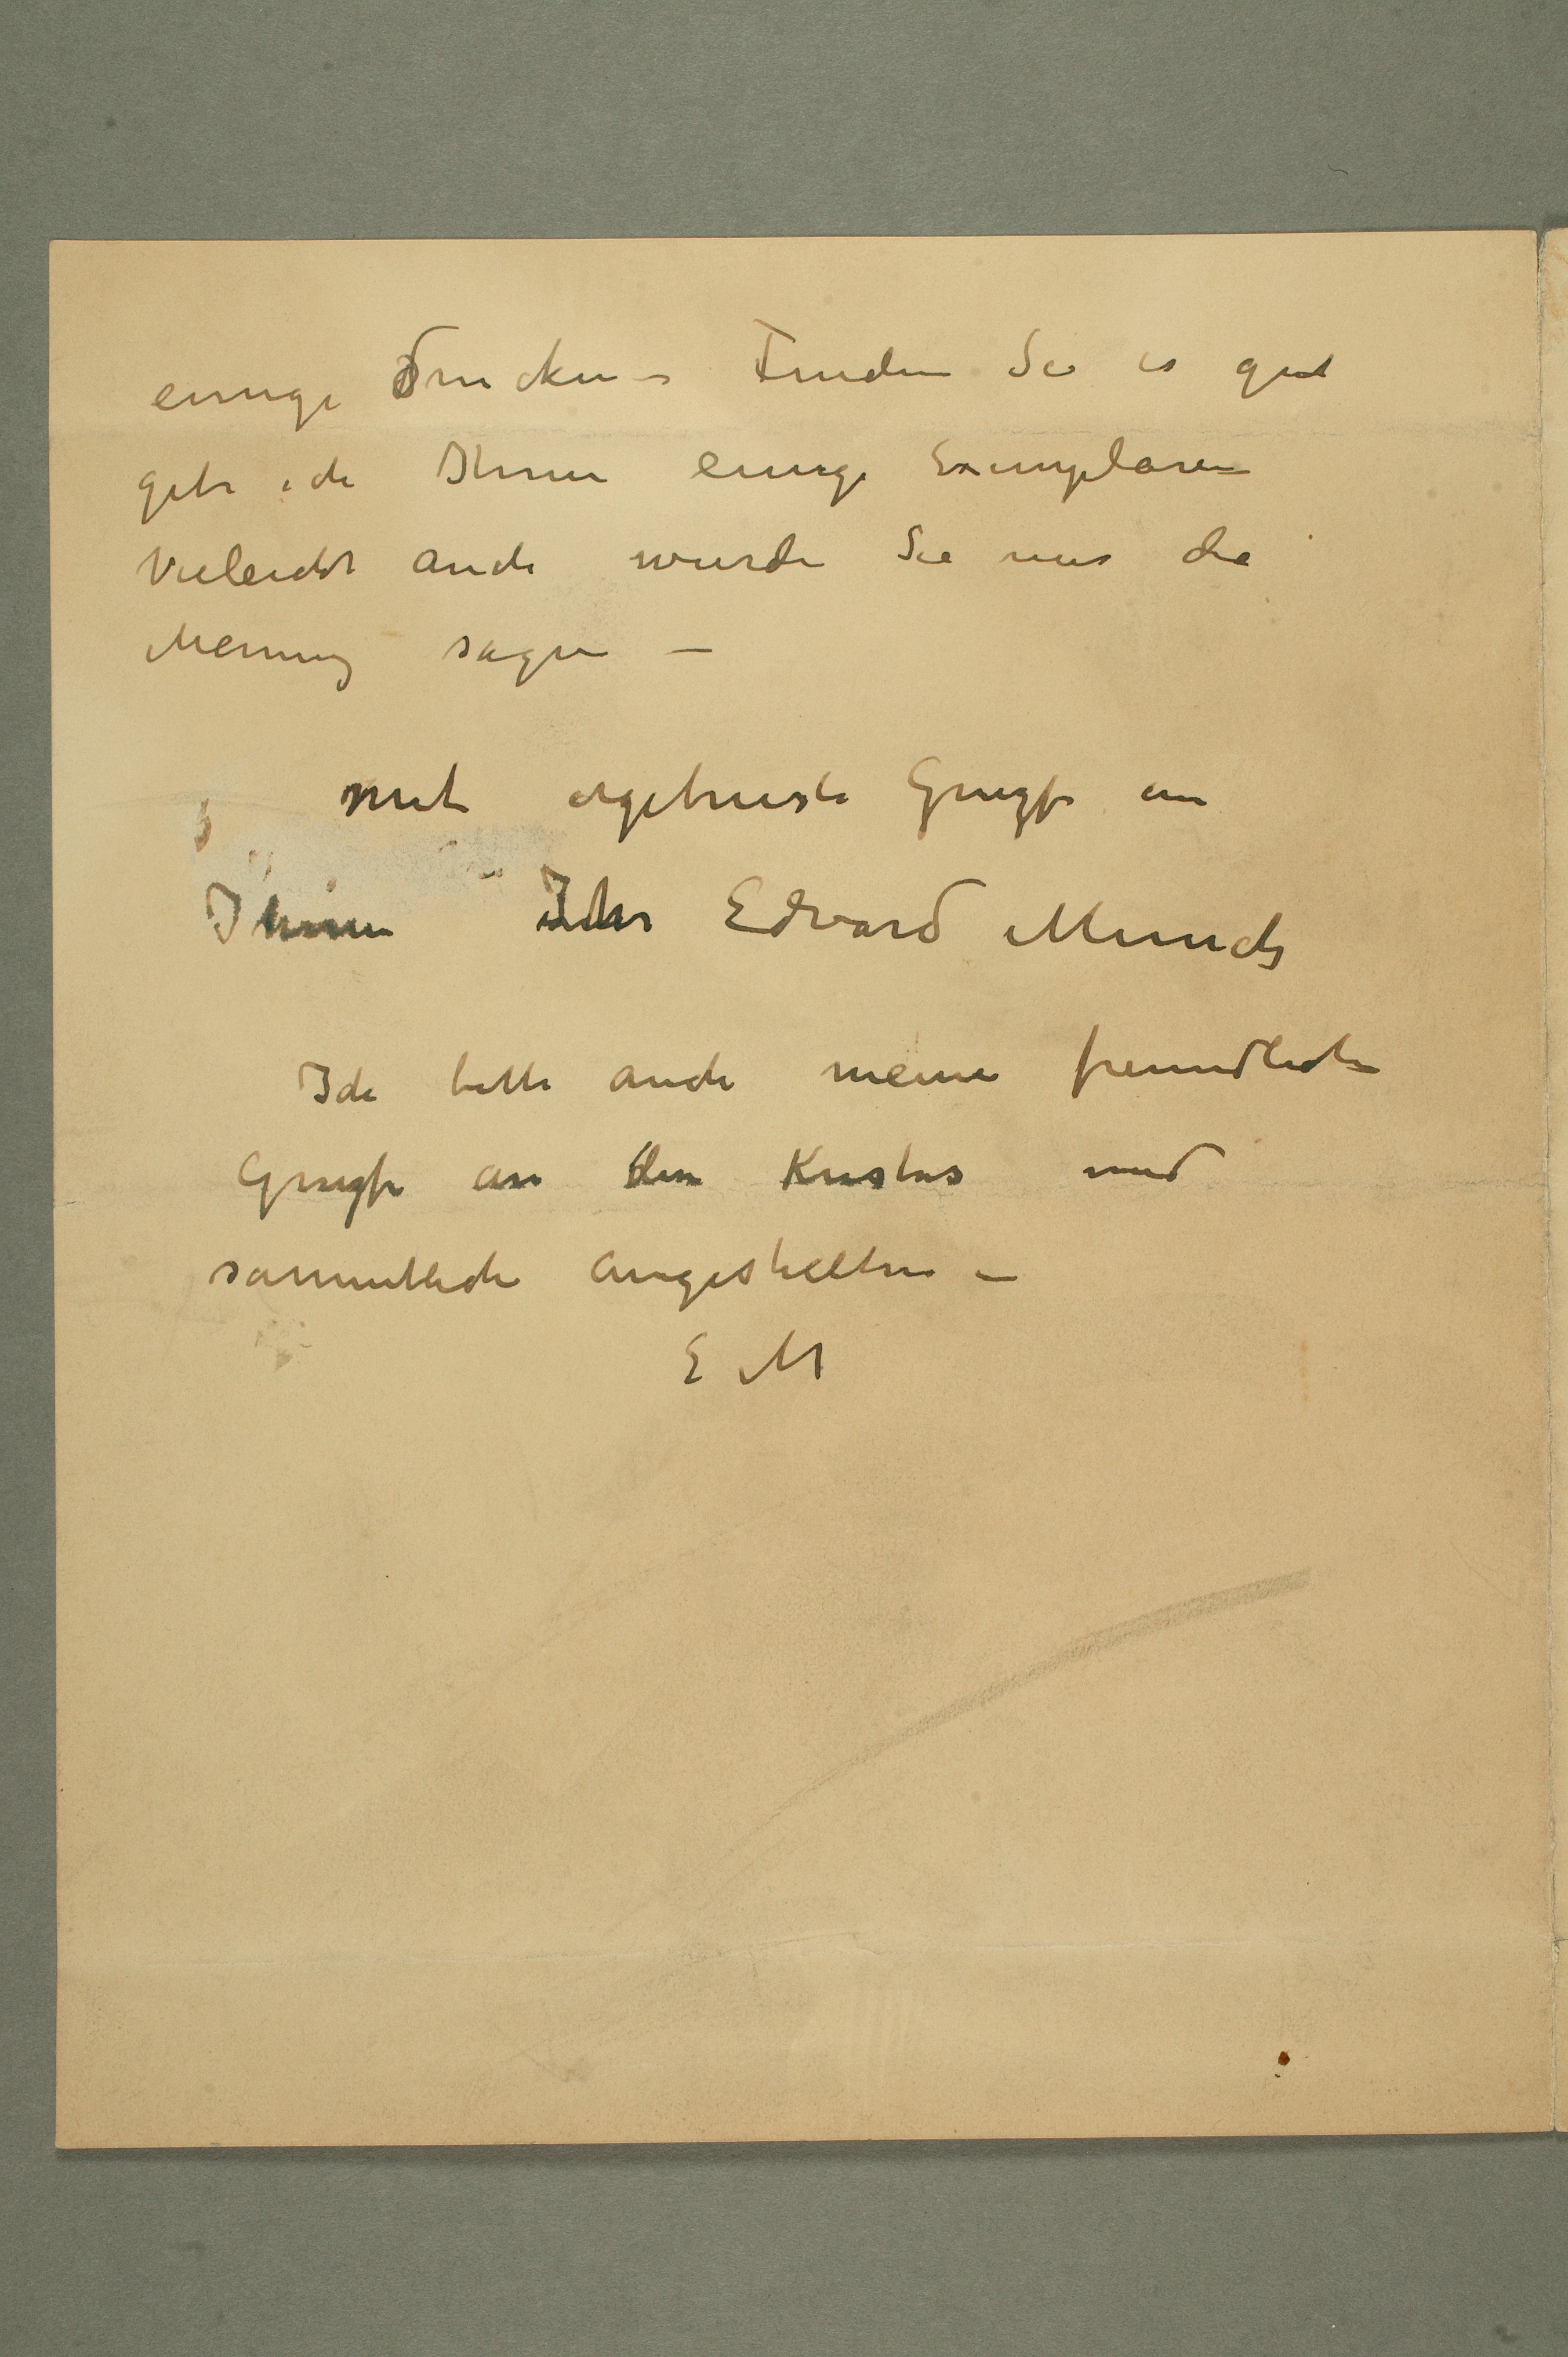 einige drucken – Finden Sie es gut
gebe ich Ihnen einige Exemplaren
Vieleicht auch wurde Sie mir die
Meinung sagen –
mit ergebneste Grüße an
Ihnen Ihr Edvard Munch
Ich bitte auch meine freundliche
Grüße an den Kustos und
sammtliche Angestellten –
E M